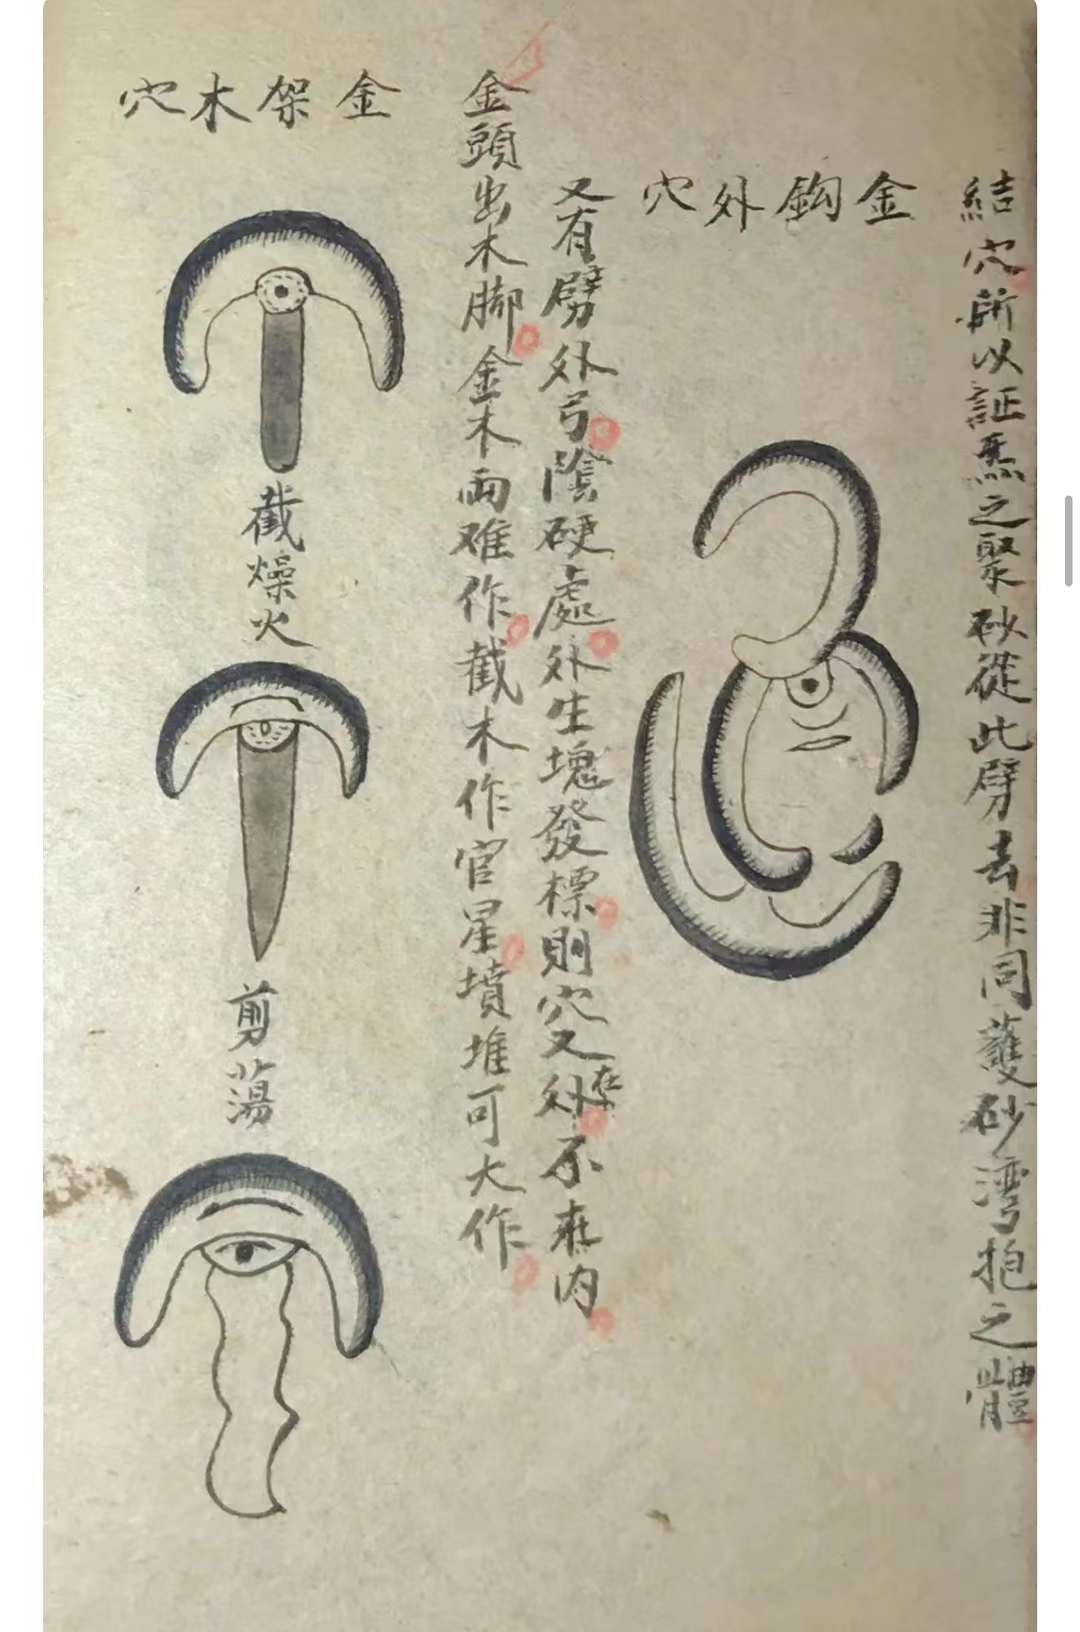 結穴所以証炁之聚砂從此劈去非同護砂湾抱之體
金鈎外穴
又有劈外弓陰硬處外生塊發標則穴又在外不在内
金頭出木脚金木兩难作截木作官星墳堆可大作
金架木穴
截燥火
剪蕩